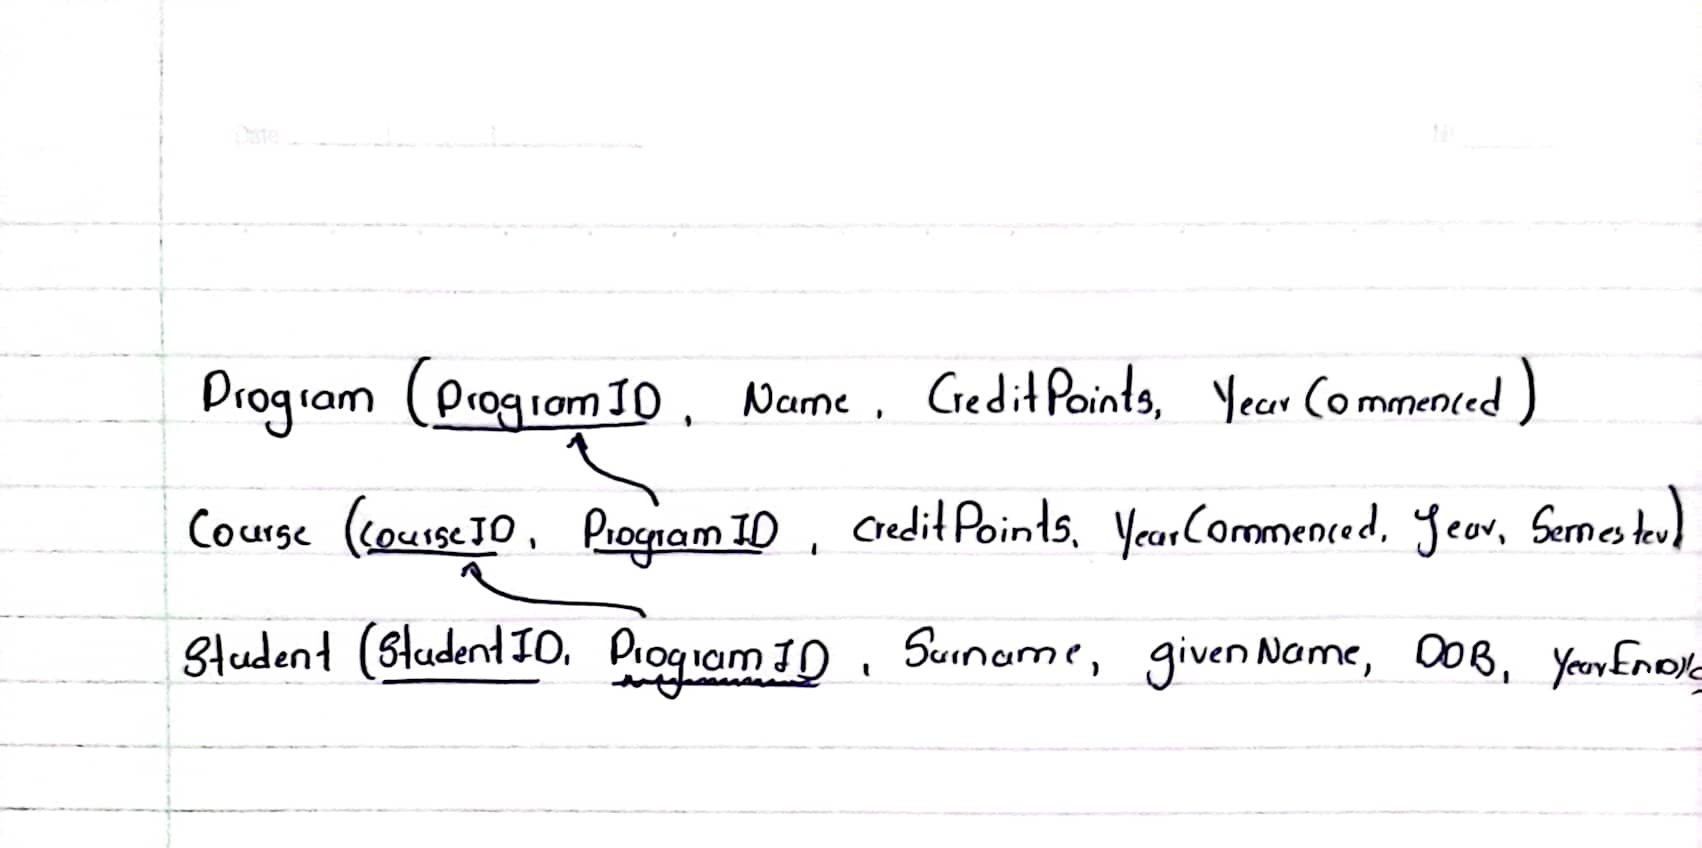 Date
Program (ProgramID, Name, CreditPoints, YearCommenced)
Course (CourseID, ProgramID, CreditPoints, YearCommenced, Year, Semester)
Student (StudentID, ProgramID, Surname, givenName, DOB,